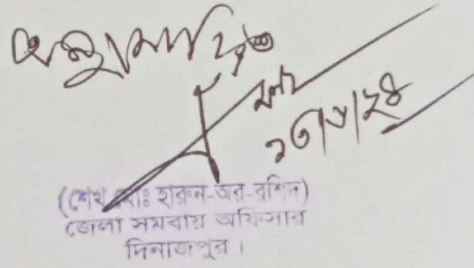 অনুমোদিত
(শেখ মোঃ হারুন-অর-রশিদ)
জেলা সমবায় অফিসার
দিনাজপুর।